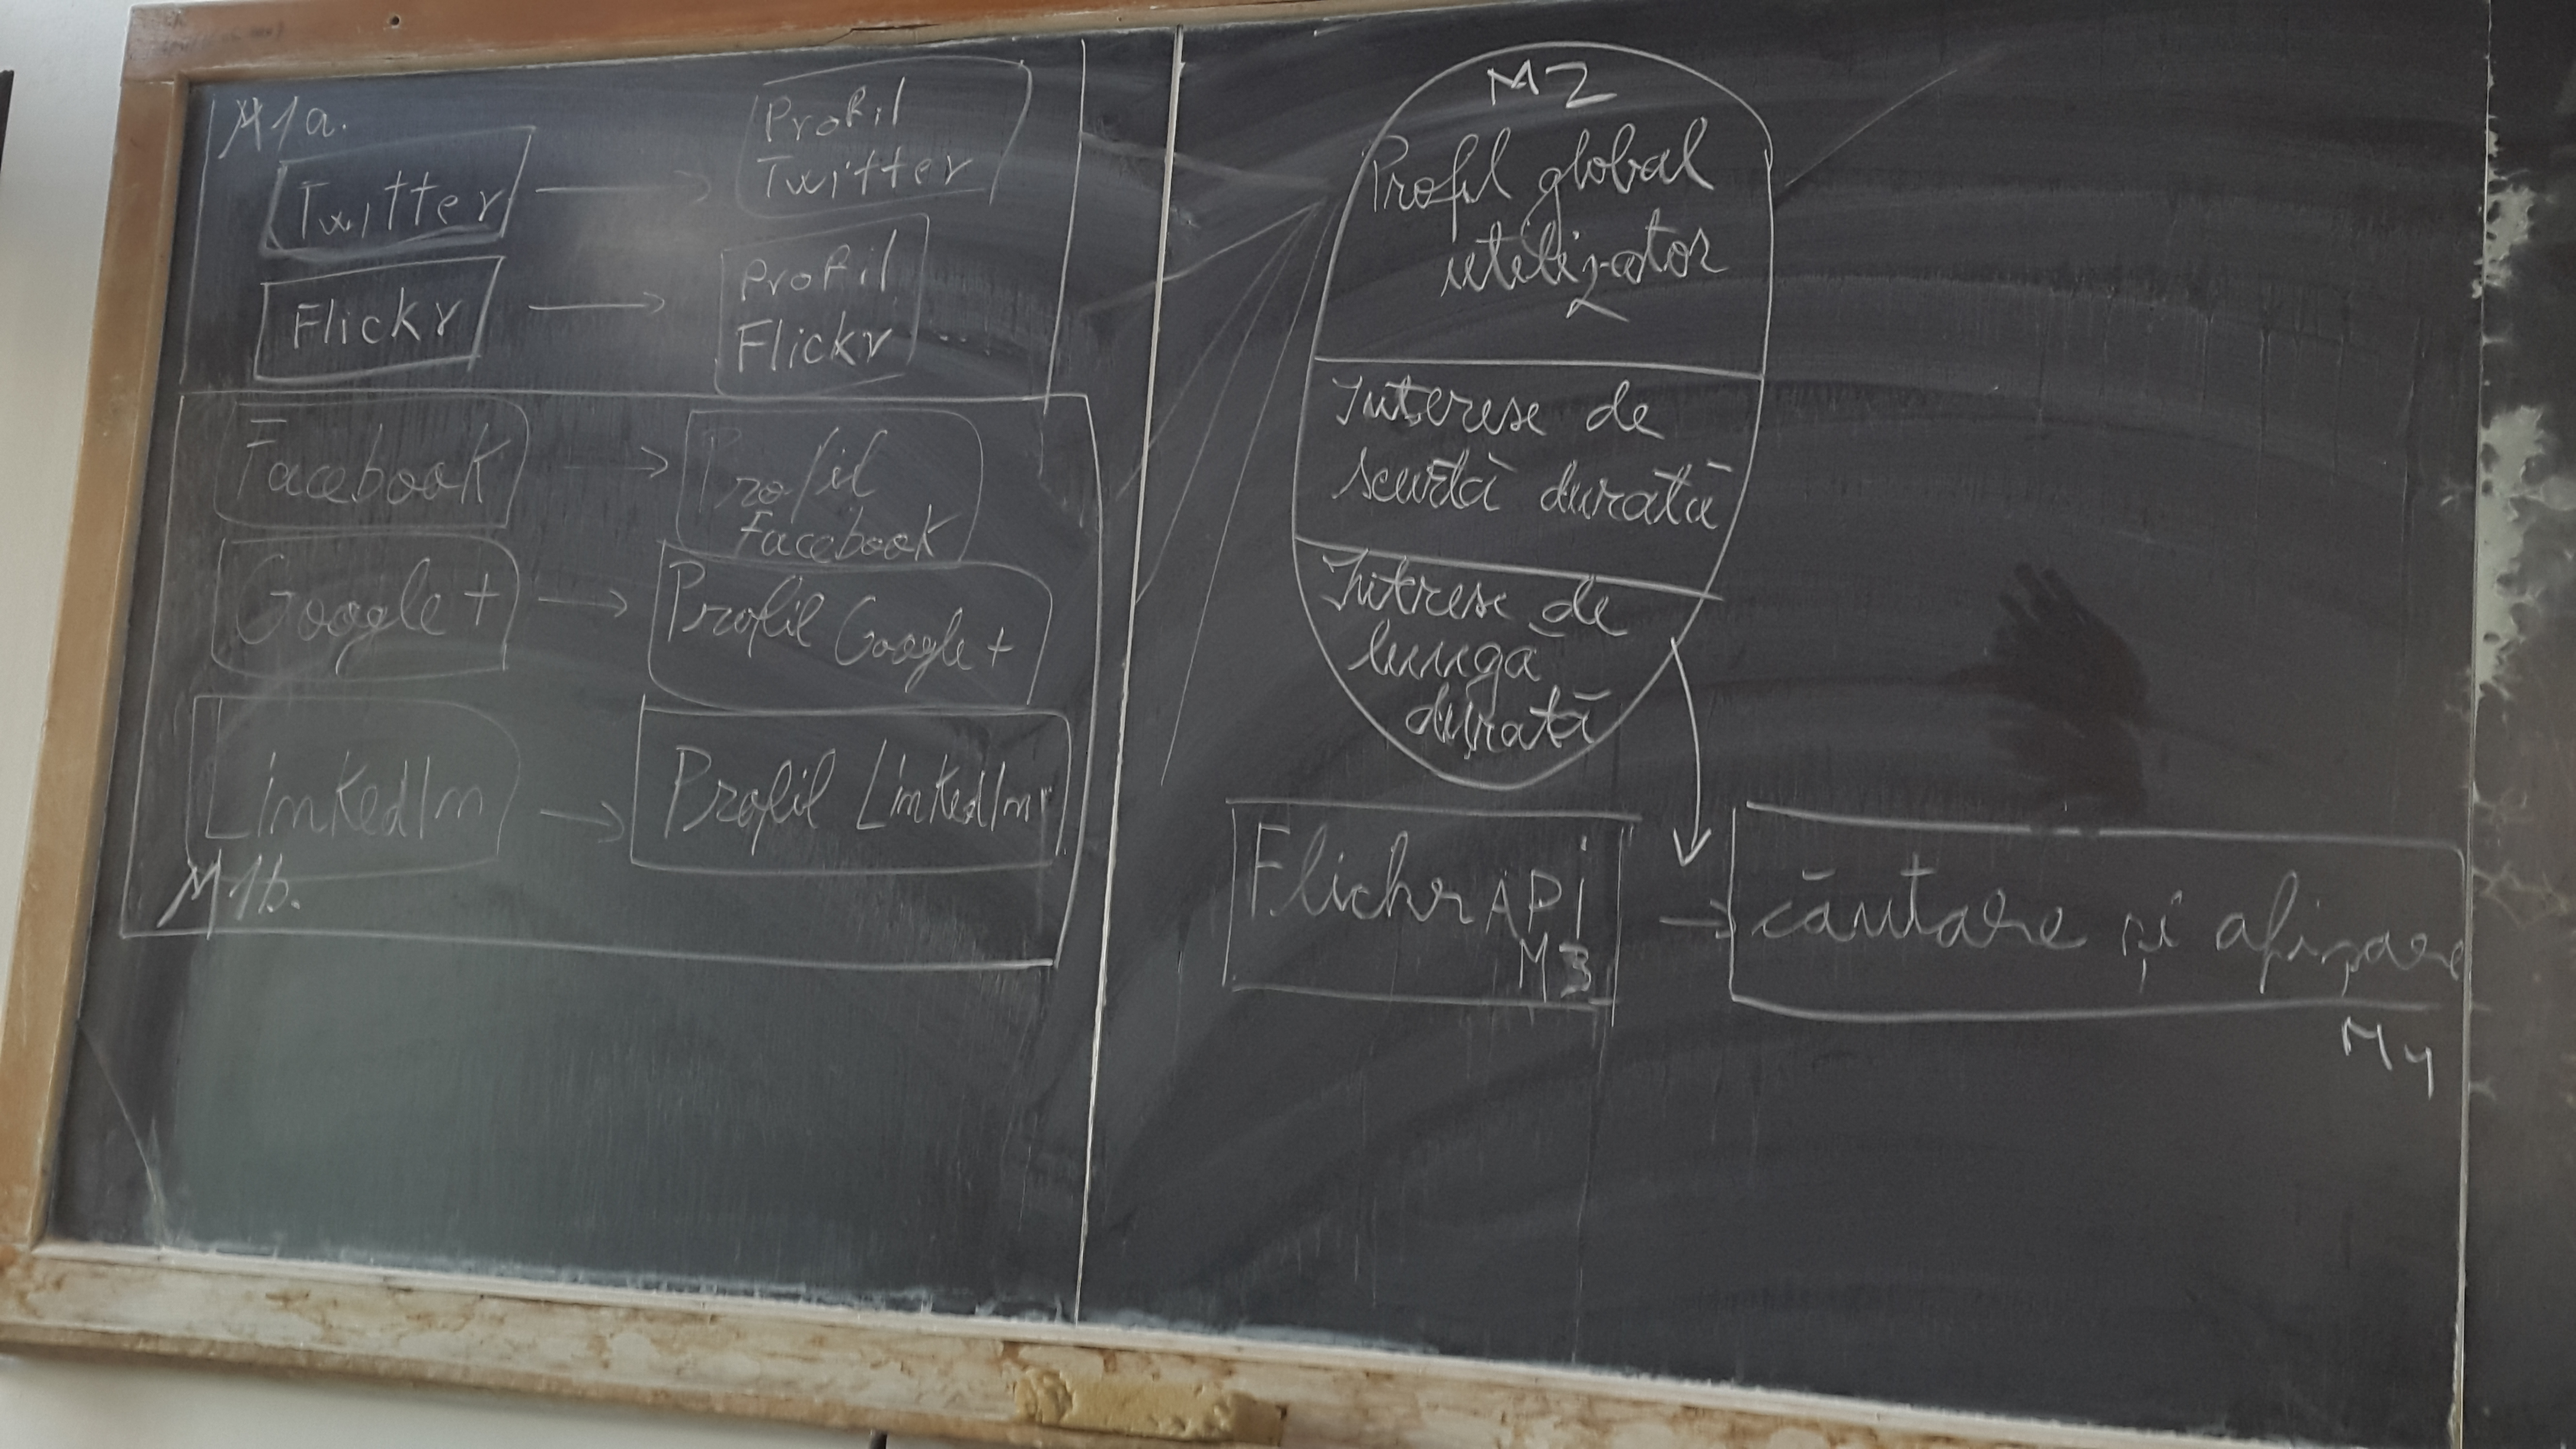 M1a.
Twitter
Profil
Twitter
Flickr
Profil
Flickr
Facebook
Profil
Facebook
Google+
Profil Google+
LinkedIn
Profil LinkedIn
M1b.
M2
Profil global
utilizator
Interese de
scurtă durată
Intrese de
lungă
durată
Flickr API
M3
căutare și afișare
M4